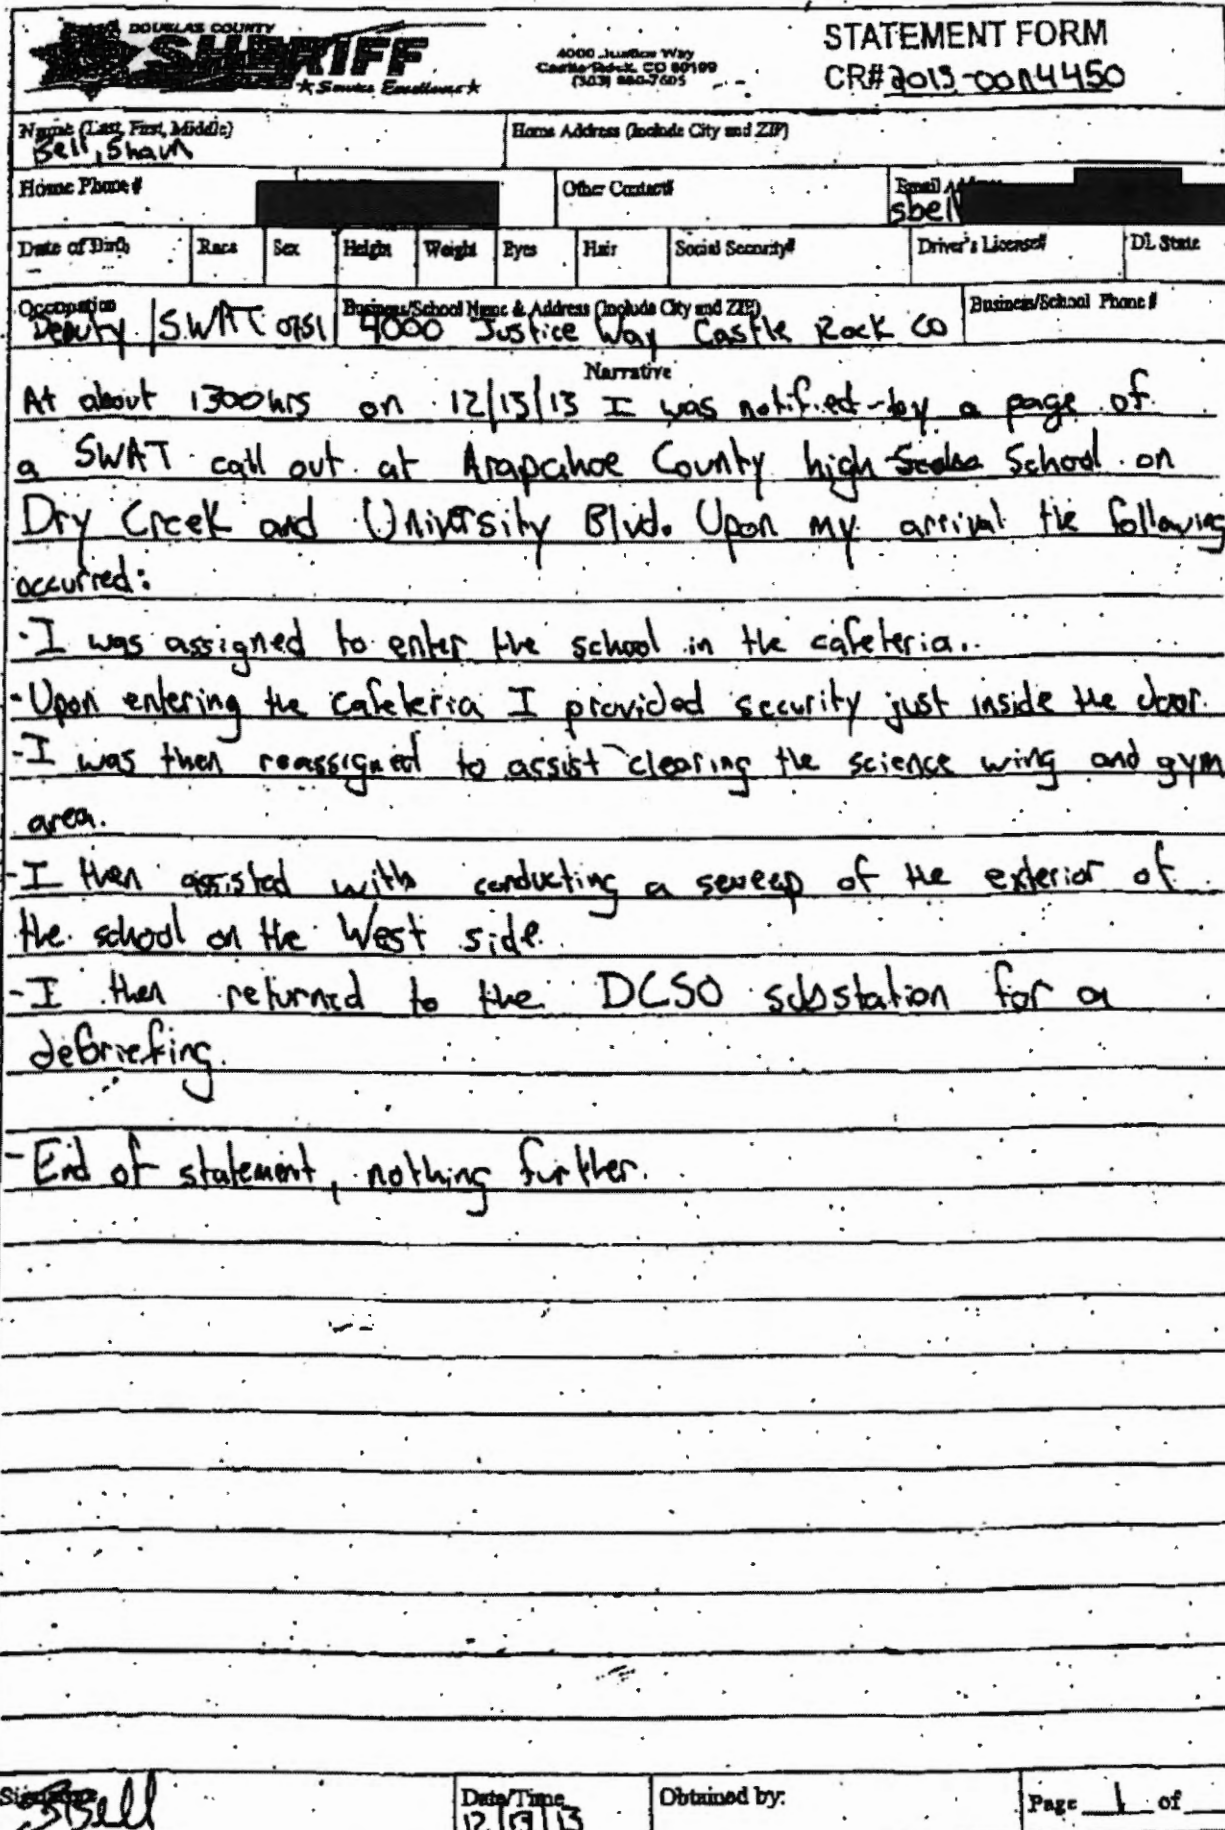 DOUGLAS COUNTY
SHERIFF
★ Service Excellence ★
4000 Justice Way
Castle Rock, CO 80109
(303) 660-7505
STATEMENT FORM
CR# 2013-00114450
Name (Last, First, Middle)
Bell, Shaun
Home Address (Include City and ZIP)
Home Phone #
Other Contact#
Email
sbell
Date of Birth
Race
Sex
Height
Weight
Eyes
Hair
Social Security#
Driver's License#
DL State
Occupation
Deputy / SWAT 0751
Business/School Name & Address (Include City and ZIP)
4000 Justice Way Castle Rock CO
Business/School Phone #
Narrative
At about 1300hrs on 12/13/13 I was notified by a page of
a SWAT call out at Arapahoe County high School on
Dry Creek and University Blvd. Upon my arrival the following
occurred:
-I was assigned to enter the school in the cafeteria.
-Upon entering the cafeteria I provided security just inside the door.
-I was then reassigned to assist clearing the science wing and gym
area.
-I then assisted with conducting a sweep of the exterior of
the school on the West side.
-I then returned to the DCSO substation for a
debriefing.
-End of statement, nothing further.
Signature
SBell
Date/Time
12/13/13
Obtained by:
Page 1 of